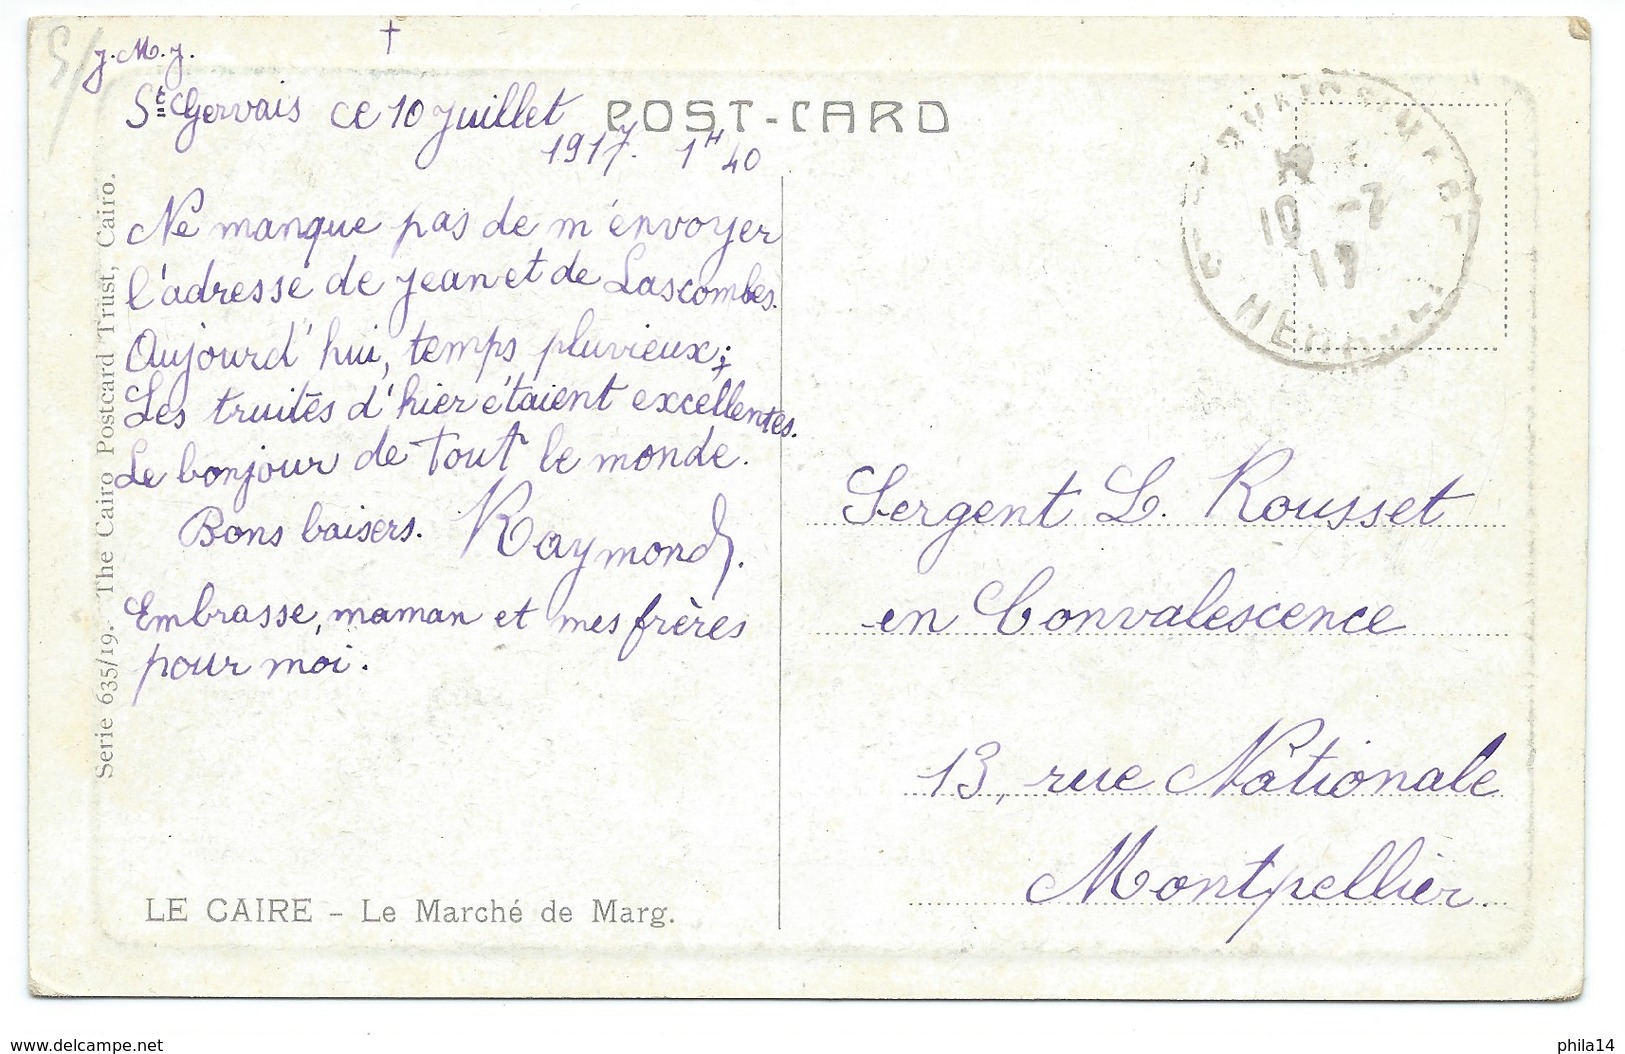 J.M.J. †
St Gervais ce 10 Juillet
1917. 1H 40
POST-CARD
Ne manque pas de m'envoyer
l'adresse de Jean et de Lascombes.
Aujourd'hui, temps pluvieux;
Les truites d'hier étaient excellentes.
Le bonjour de tout le monde.
Bons baisers. Raymond.
Embrasse, maman et mes frères
pour moi.
LE CAIRE – Le Marché de Marg.
Serie 635/19. The Cairo Postcard Trust, Cairo.
10 -7
17
Sergent L. Rousset
en Convalescence
13, rue Nationale
Montpellier.
www.delcampe.net
phila14